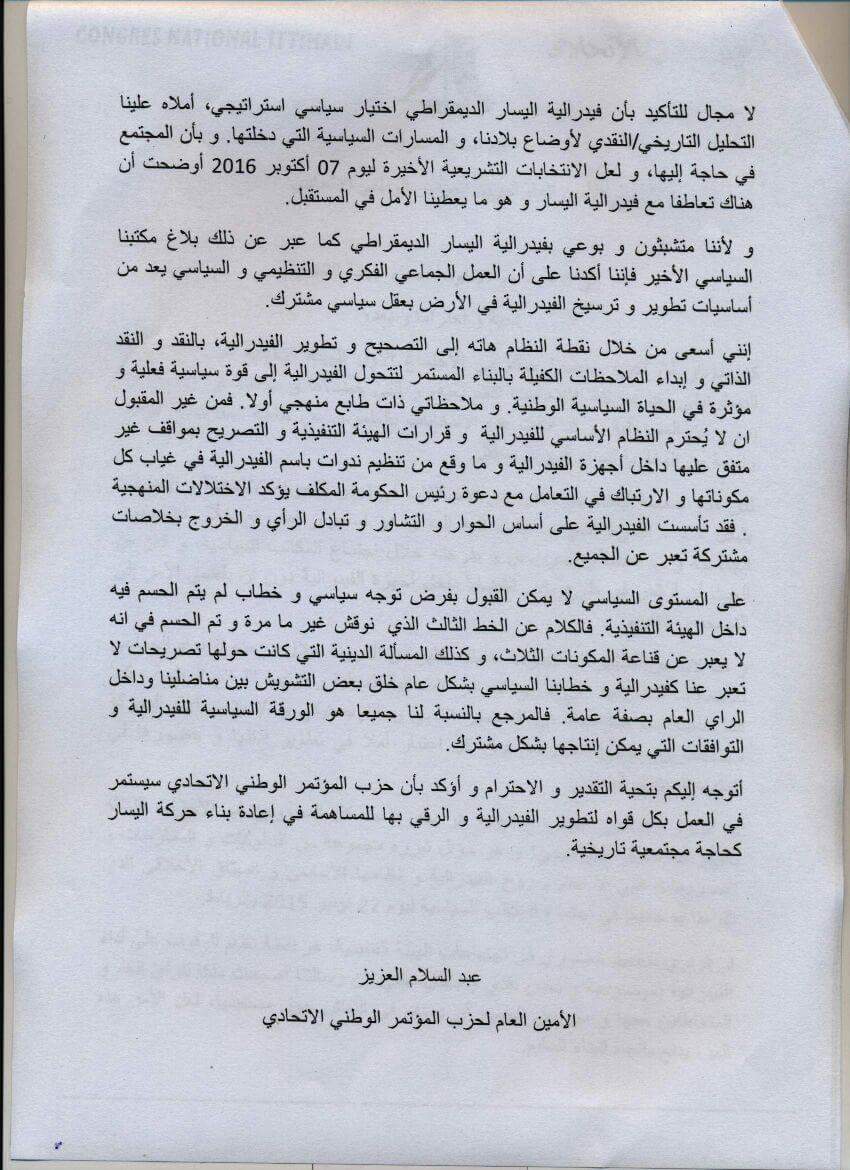 CONGRES NATIONAL ITTIHADI
لا مجال للتأكيد بأن فيدرالية اليسار الديمقراطي اختيار سياسي استراتيجي، أملاه علينا
التحليل التاريخي/النقدي لأوضاع بلادنا، و المسارات السياسية التي دخلتها. و بأن المجتمع
في حاجة إليها، و لعل الانتخابات التشريعية الأخيرة ليوم 07 أكتوبر 2016 أوضحت أن
هناك تعاطفا مع فيدرالية اليسار و هو ما يعطينا الأمل في المستقبل.
و لأننا متشبثون و بوعي بفيدرالية اليسار الديمقراطي كما عبر عن ذلك بلاغ مكتبنا
السياسي الأخير فإننا أكدنا على أن العمل الجماعي الفكري و التنظيمي و السياسي يعد من
أساسيات تطوير و ترسيخ الفيدرالية في الأرض بعقل سياسي مشترك.
إنني أسعى من خلال نقطة النظام هاته إلى التصحيح و تطوير الفيدرالية، بالنقد و النقد
الذاتي و إبداء الملاحظات الكفيلة بالبناء المستمر لتتحول الفيدرالية إلى قوة سياسية فعلية و
مؤثرة في الحياة السياسية الوطنية. و ملاحظاتي ذات طابع منهجي أولا. فمن غير المقبول
ان لا يُحترم النظام الأساسي للفيدرالية و قرارات الهيئة التنفيذية و التصريح بمواقف غير
متفق عليها داخل أجهزة الفيدرالية و ما وقع من تنظيم ندوات باسم الفيدرالية في غياب كل
مكوناتها و الارتباك في التعامل مع دعوة رئيس الحكومة المكلف يؤكد الاختلالات المنهجية
. فقد تأسست الفيدرالية على أساس الحوار و التشاور و تبادل الرأي و الخروج بخلاصات
مشتركة تعبر عن الجميع.
على المستوى السياسي لا يمكن القبول بفرض توجه سياسي و خطاب لم يتم الحسم فيه
داخل الهيئة التنفيذية. فالكلام عن الخط الثالث الذي نوقش غير ما مرة و تم الحسم في انه
لا يعبر عن قناعة المكونات الثلاث، و كذلك المسألة الدينية التي كانت حولها تصريحات لا
تعبر عنا كفيدرالية و خطابنا السياسي بشكل عام خلق بعض التشويش بين مناضلينا وداخل
الراي العام بصفة عامة. فالمرجع بالنسبة لنا جميعا هو الورقة السياسية للفيدرالية و
التوافقات التي يمكن إنتاجها بشكل مشترك.
أتوجه إليكم بتحية التقدير و الاحترام و أؤكد بأن حزب المؤتمر الوطني الاتحادي سيستمر
في العمل بكل قواه لتطوير الفيدرالية و الرقي بها للمساهمة في إعادة بناء حركة اليسار
كحاجة مجتمعية تاريخية.
عبد السلام العزيز
الأمين العام لحزب المؤتمر الوطني الاتحادي